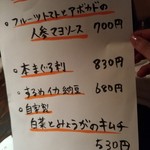 。フルーツトマトとアボカドの
人参マヨソース 700円
。本まぐろ刺 830円
。するめイカ納豆 680円
。自家製
白菜とみょうがのキムチ
530円